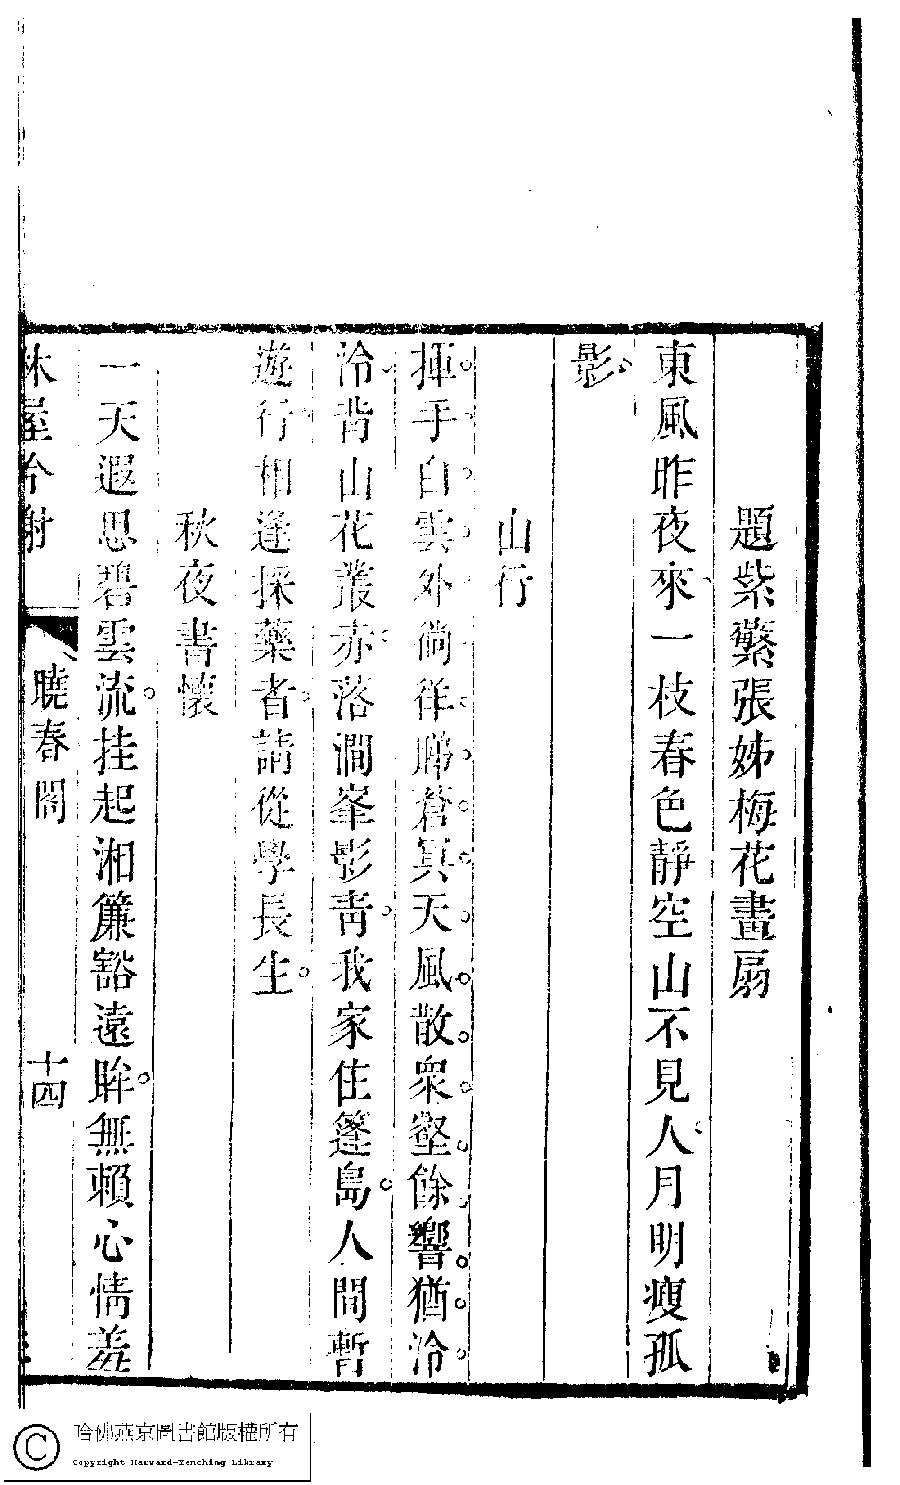 題紫蘩張姊梅花畫扇
東風昨夜來一枝春色靜空山不見人月明瘦孤
影
山行
揮手白雲外徜徉睇蒼冥天風散衆壑餘響猶泠
泠背山花叢赤落澗峯影靑我家住篷島人間暫
遊行相逢採藥者請從學長生
秋夜書懷
一天遐思碧雲流挂起湘簾豁遠眸無賴心情羞
林屋今
曉春閣
十四
哈佛燕京圖書館版權所有
Copyright Harvard-Yenching Library